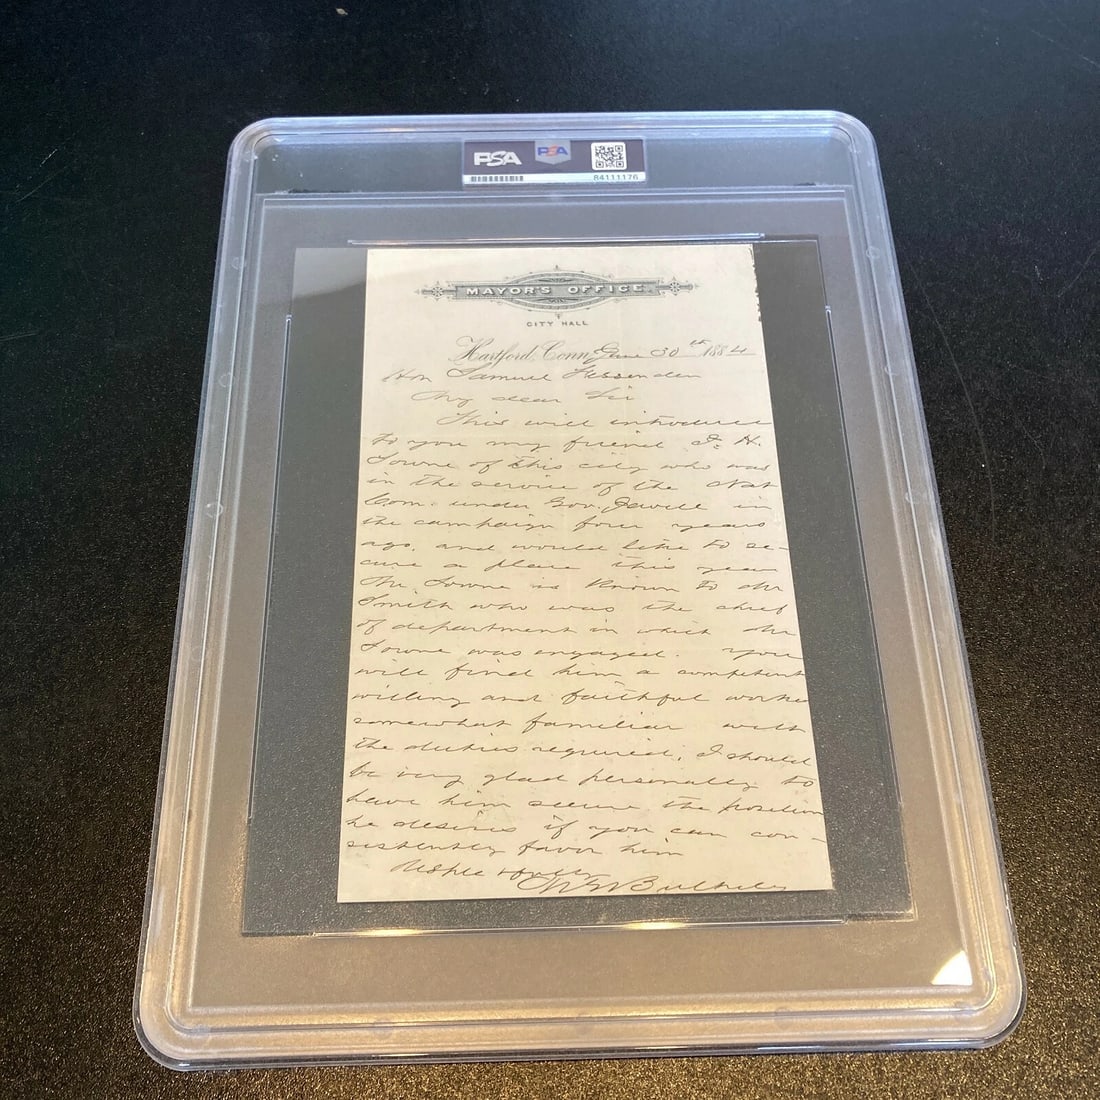 PSA PSA
84111176
MAYOR'S OFFICE
CITY HALL
Hartford, Conn. June 30th 1884
Hon Samuel Fessenden
My dear Sir
This will introduce
to you my friend J. H.
Towne of this city who was
in the service of the Nat
Com. under Gov. Jewell in
the campaign four years
ago, and would like to se-
cure a place this year
Mr Towne is known to Mr
Smith who was the chief
of department in which Mr
Towne was engaged. You
will find him a competent
willing and faithful worker
somewhat familiar with
the duties required, I should
be very glad personally to
have him secure the position
he desires if you can con-
sistently favor him
Respectfully
M G Bulkeley